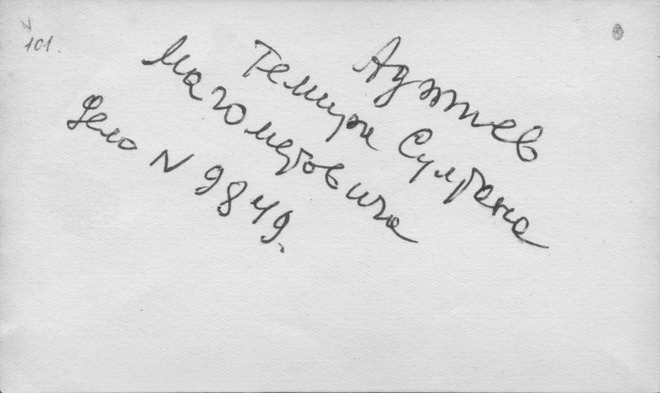 101.
Аджиев
Темира Султана
Магометовича
Дело N 9849.